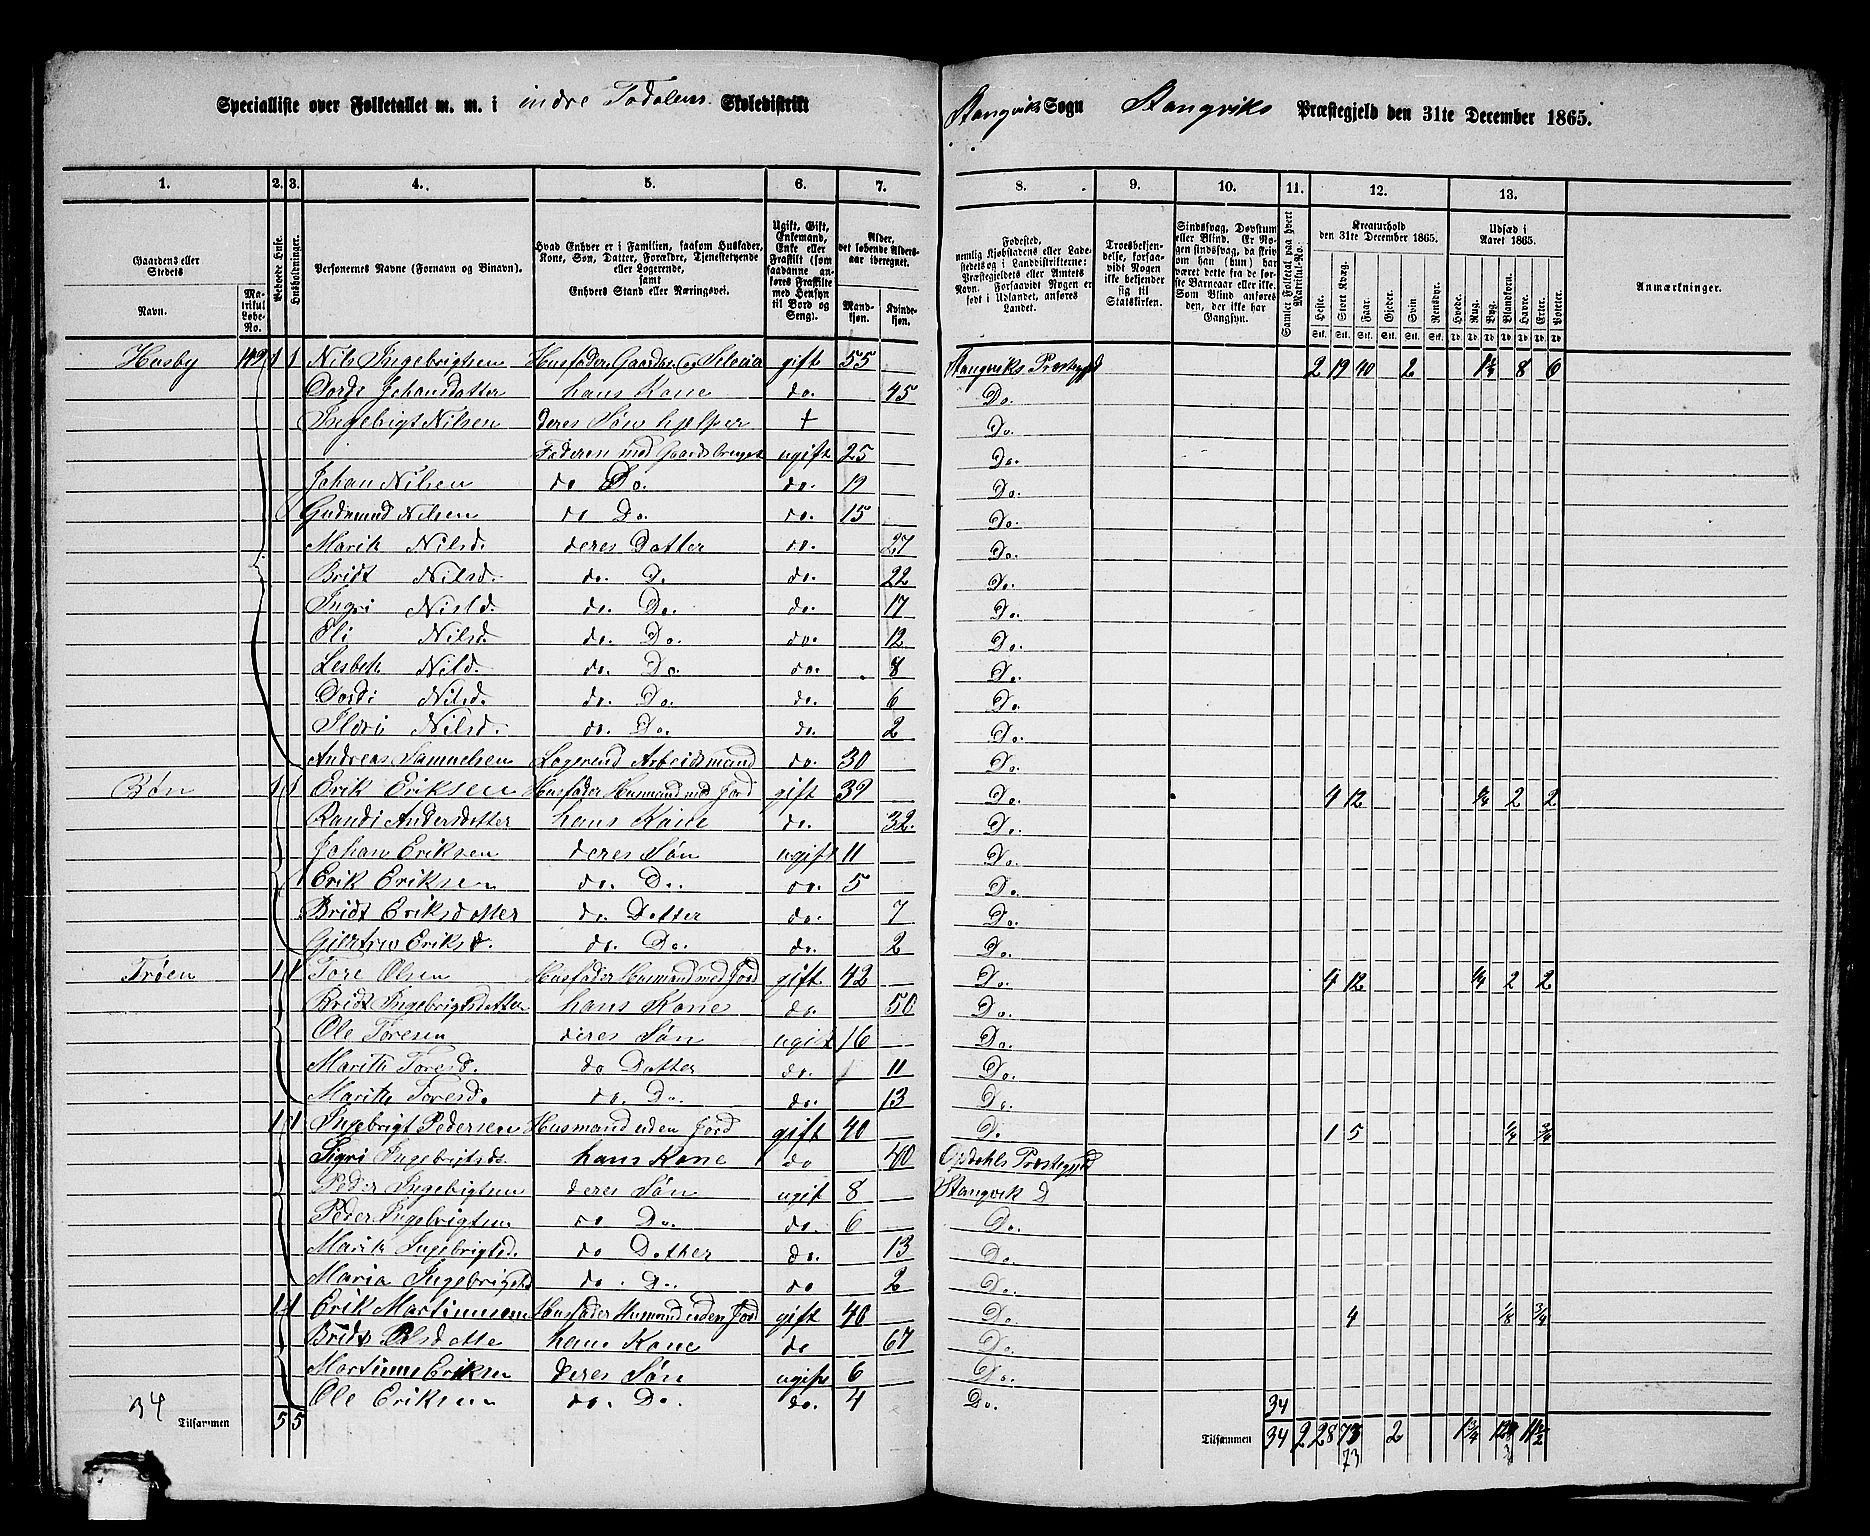 Specialliste over Folketallet m. m. i indre Todalens Skoledistrikt Stangvik Sogn Stangviks Præstegjeld den 31te December 1865.
1. 2. 3. 4. 5. 6. 7. 8. 9. 10. 11. 12. 13.
Gaardens eller Stedets
Navn. Matrikul Løbe-No.
Beboede Huse.
Husholdninger.
Personernes Navne (Fornavn og Binavn).
Hvad Enhver er i Familien, saasom Husfader, Kone, Søn, Datter, Forældre, Tjenestetyende eller Logerende, samt Enhvers Stand eller Næringsvei.
Ugift, Gift, Enkemand, Enke eller Fraskilt (som saadanne anføres Fraskilte med Hensyn til Bord og Seng).
Alder, det løbende Aldersaar iberegnet.
Mandkjøn. Kvindekjøn.
Fødested, nemlig Kjøbstadens eller Ladestedets og i Landdistrikterne: Præstegjeldets eller Amtets Navn. Forsaavidt Nogen er født i Udlandet, anføres Landet.
Troesbekjendelse, forsaavidt Nogen ikke bekjender sig til Statskirken.
Sindssvag, Døvstum eller Blind. Er Nogen sindssvag, da skriv om han (hun) har været dette fra de første Barneaar eller ikke. Som Blind anføres den, der ikke har Gangsyn.
Samlet Folketal paa hvert Matrikul-No.
Kreaturhold den 31te December 1865.
Heste. Stort Kvæg. Faar. Gjeder. Svin. Rensdyr.
Udsæd i Aaret 1865.
Hvede. Rug. Byg. Blandkorn. Havre. Erter. Poteter.
Anmærkninger.
Husby 149 1 1 Nils Ingebrigtsen Husfader, Gaardbr. og Selveier gift 55 Stangviks Præstegjeld 2 19 40 2 1¼ 8 6
Dordi Johansdatter hans Kone do. 45 Do.
Ingebrigt Nilsen deres Søn hjelper + Do.
Faderen med Gaardsbruget ugift 25 Do.
Johan Nilsen do Do. do. 19 Do.
Gudmund Nilsen do Do. do. 15 Do.
Marit Nilsd. deres Datter do. 27 Do.
Bridt Nilsd. do. Do do. 22 Do.
Ingri Nilsd. do. Do. do. 17 Do.
Eli Nilsd. do. Do. do. 12 Do.
Lesbeth Nilsd. do. Do. do. 8 Do.
Dordi Nilsd. do. Do. do. 6 Do.
Nilsd. do. Do. do. 2 Do.
Andreas Samuelsen Logerend Arbeidsmand do. 30 Do.
Bøn 1 1 Erik Eriksen Husfader Husmand med Jord gift 39 Do. 4 12 ¼ 2 2
Randi Andersdatter hans Kone do. 32. Do.
Johan Eriksen deres Søn ugift 11 Do.
Erik Eriksen do. Do. do. 5 Do.
Bridt Eriksdatter do. Datter do. 7 Do.
Gjertru Eriksd. do. Do. do. 2 Do.
Trøen 1 1 Tore Olsen Husfader Husmand med Jord gift 42 Do. 4 12 ¼ 2 2
Bridt Ingebrigtsdatter hans Kone do. 50 Do.
Ole Toresen deres Søn ugift 16 Do.
Marith Toresd. do Datter do. 11 Do.
Marith Toresd. do. Do. do. 13 Do.
1 1 Ingebrigt Pedersen Husmand uden Jord gift 40 Do 1 5 ¼ ¾
Sigri Ingebrigtsd. hans Kone do 40 Opdahls Præstegjeld
Peder Ingebrigtsen deres Søn ugift 8 Stangvik D
Peder Ingebrigtsen do Do. do. 6 Do.
Marit Ingebrigtsd. do Dother do. 13 Do.
Maria Ingebrigtsd do. Do. do 2 Do.
1 1 Erik Martinusen Husfader Husmand uden Jord gift 40 Do. 4 ⅛ ¾
Bridt Olsdatter hans Kone do 67 Do.
Martinus Eriksen deres Søn ugift 6 Do.
Ole Eriksen do. Do. do. 4 Do. 34
34 Tilsammen 5 5 Tilsammen 34 2 28 73 2 1¾ 11½
73